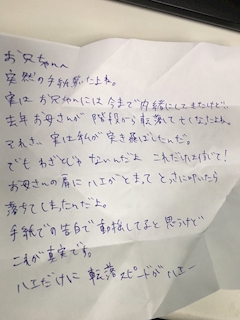 お兄ちゃんへ
突然の手紙驚いたよね。
実はお兄ちゃんには今まで内緒にしてたけど、
去年お母さんが階段から転落して亡くなったよね。
それさ、実は私が突き飛ばしたんだ。
でもわざとじゃないんだよ これだけは信じて!
お母さんの肩にハエがとまって とっさに叩いたら
落ちてしまったんだよ。
手紙での告白で動揺してると思うけど
これが真実です。
ハエだけに 転落スピードがハエー